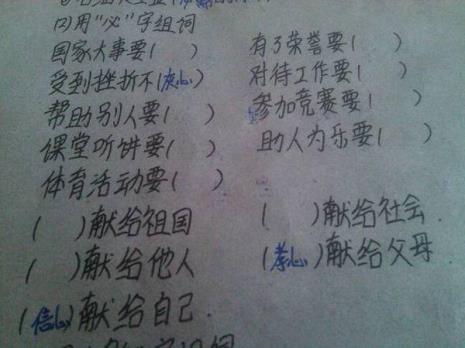 (2)用"心"字组词
国家大事要( ) 有了荣誉要( )
受到挫折不(灰心) 对待工作要( )
帮助别人要( ) 参加竞赛要( )
课堂听讲要( ) 助人为乐要( )
体育活动要( )
( )献给祖国 ( )献给社会.
( )献给他人 (孝心)献给父母.
(信心)献给自己.